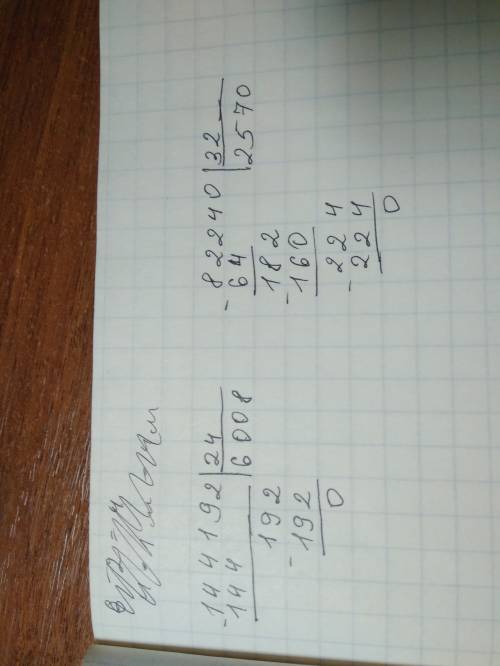 - 144192 | 24
144 | 6008
192
- 192
0
- 82240 | 32
64 | 2570
182
- 160
224
- 224
0